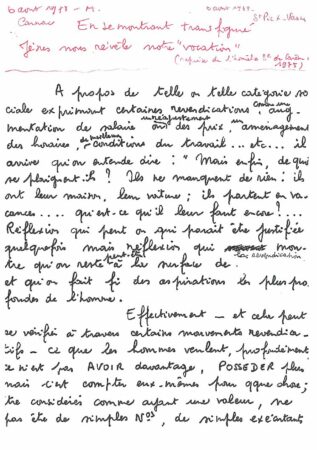 6 août 1978 - M. 6 août 1978.
Carnac St Pie X - Vannes
En se montrant transfiguré
Jésus nous révèle notre "vocation"
(reprise de l'homélie 2e dim. Carême
1978)
A propos de telle ou telle catégorie so
ciale exprimant certaines revendications, comme une aug-
mentation de salaire ou un réajustement des prix, un aménagement
des horaires, de meilleures conditions du travail... etc... il
arrive qu'on entende dire : "Mais enfin, de quoi
se plaignent-ils ? Ils ne manquent de rien : ils
ont leur maison, leur voiture ; ils partent en va
cances.... qu'est-ce qu'il leur faut encore ?...
Réflexion qui peut ou qui paraît être justifiée
quelquefois mais réflexion qui mon-
tre qu'on reste peut-être à la surface de ces revendications
et qu'on fait fi des aspirations les plus pro
fondes de l'homme.
Effectivement - et cela peut
se vérifier à travers certains mouvements revendica-
tifs - ce que les hommes veulent, profondément
ce n'est pas AVOIR davantage, POSSEDER plus
mais c'est compter eux-mêmes pour qque chose ;
être considérés comme ayant une valeur, ne
pas être de simples Nos, de simples exécutants